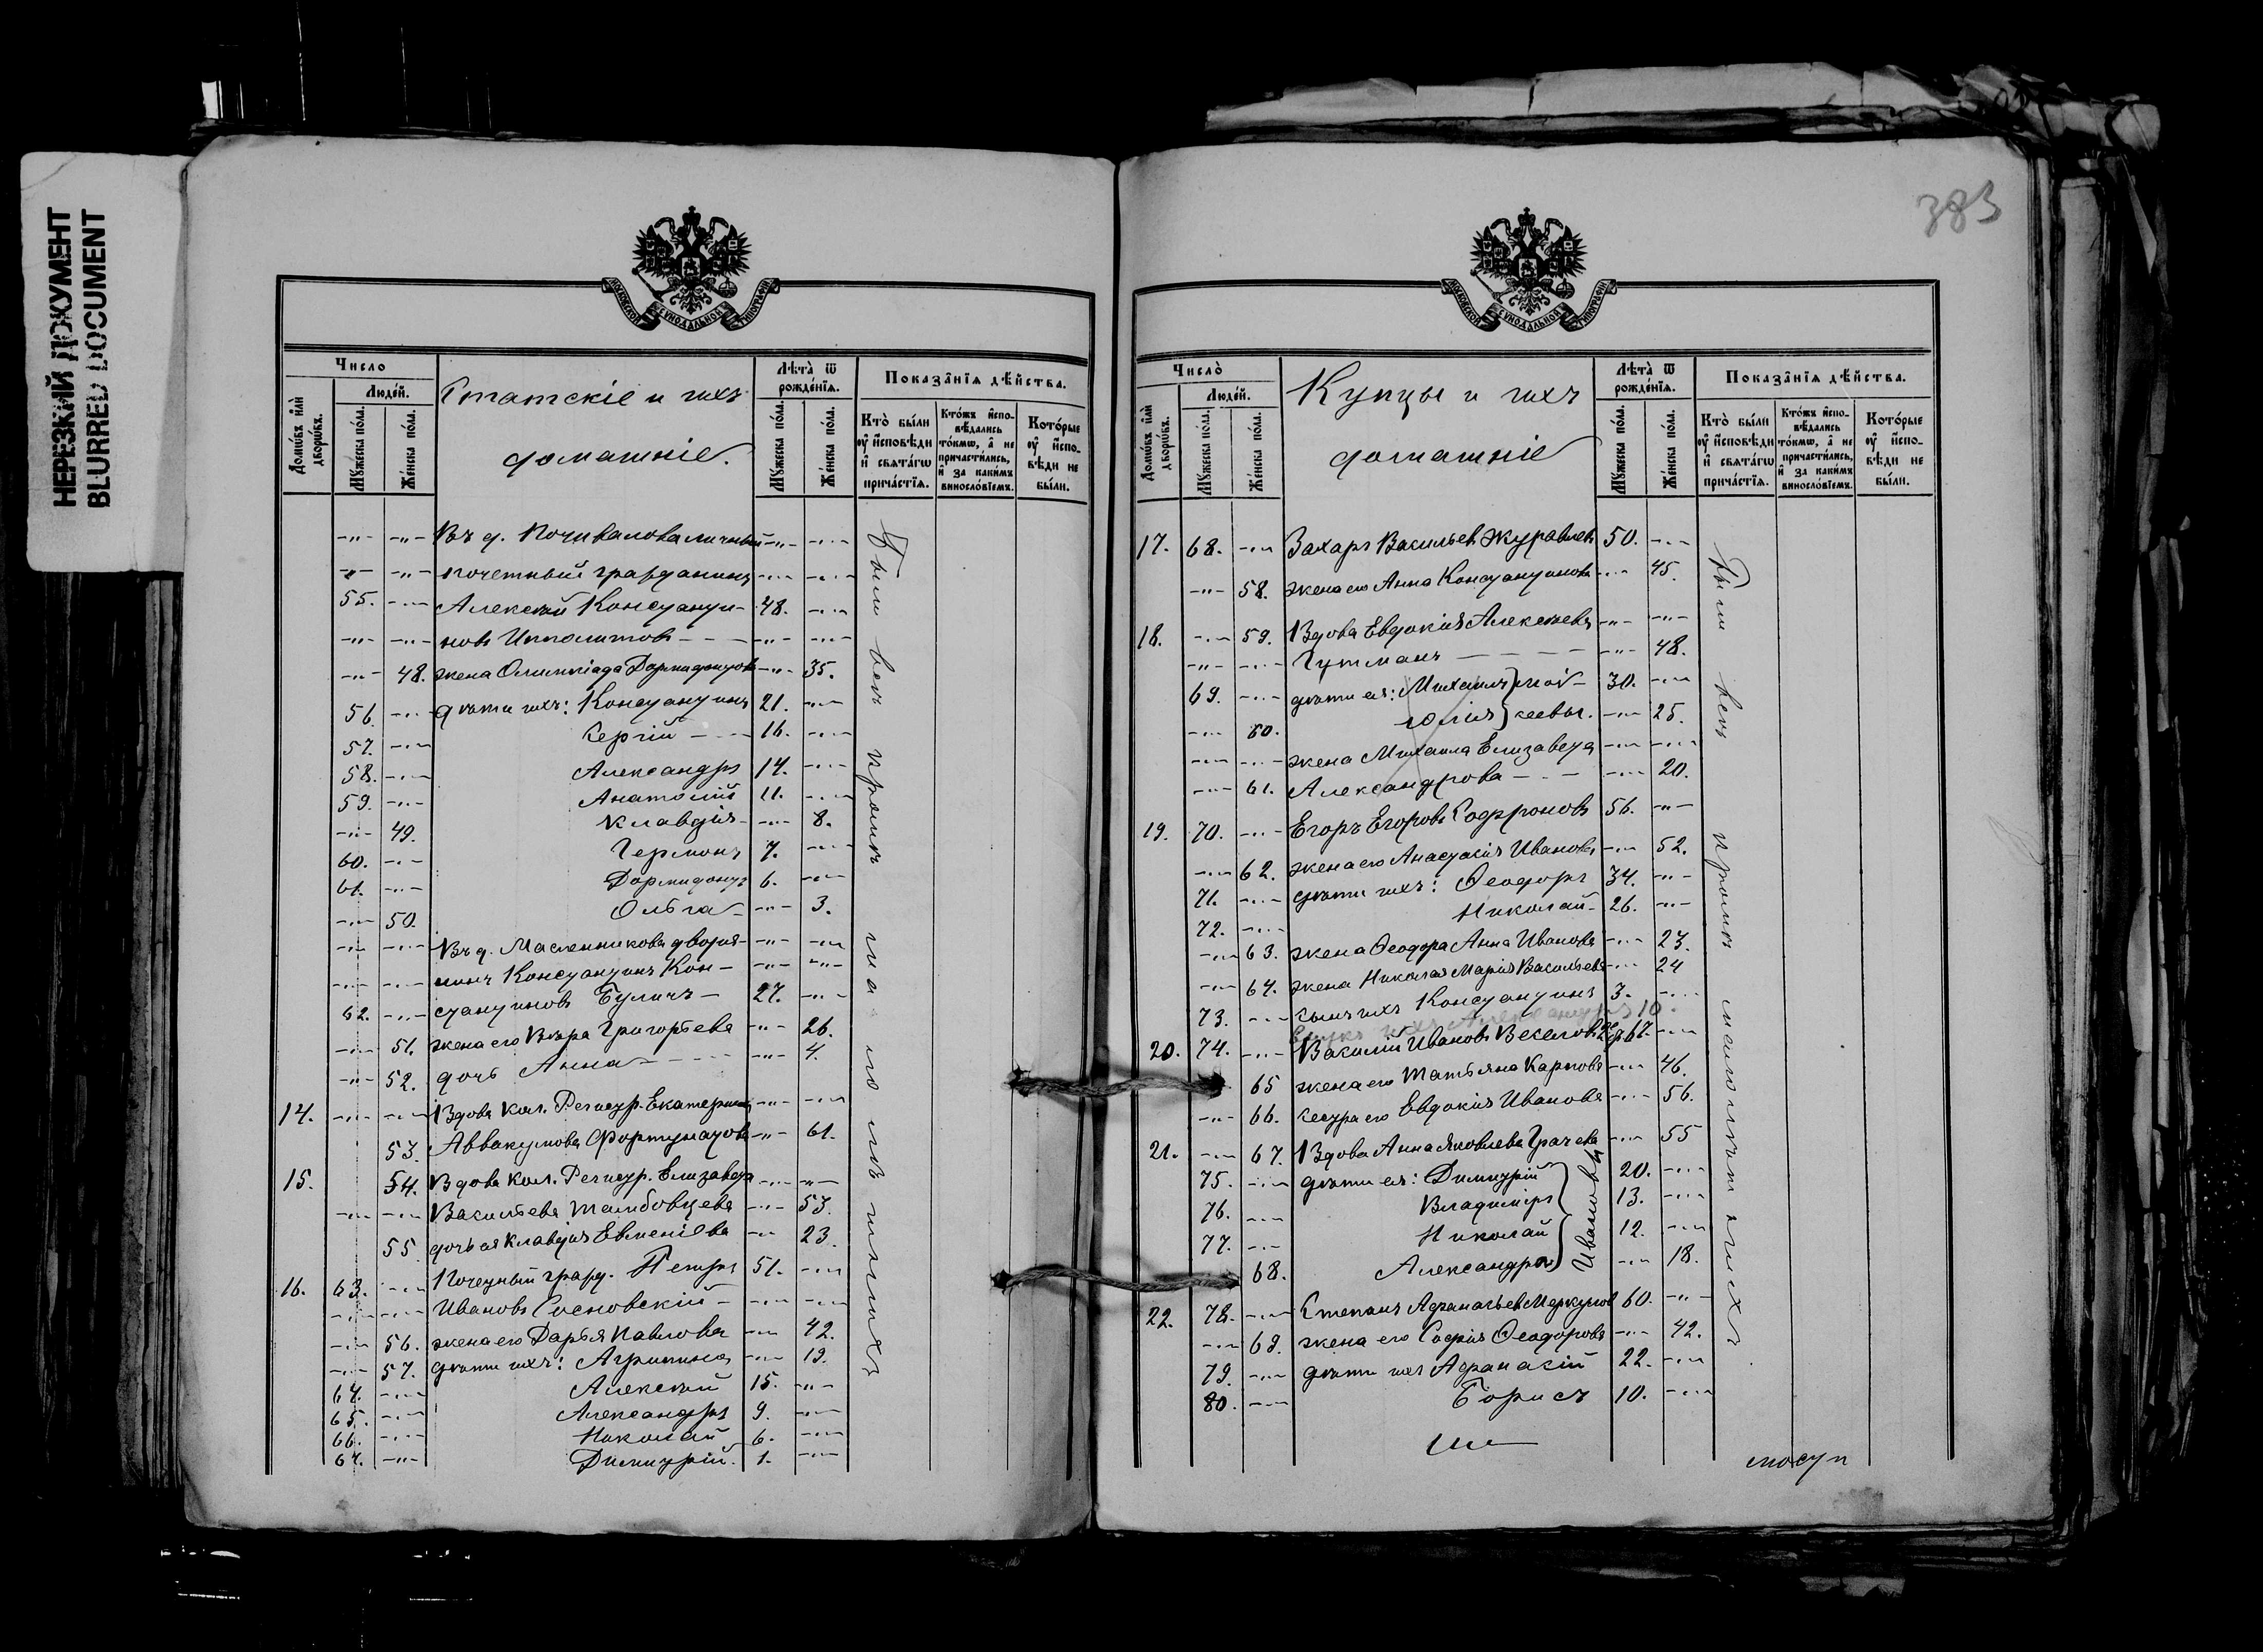 НЕРЕЗКИЙ ДОКУМЕНТ
BLURRED DOCUMENT
МОСКОВСКОЙ СѴНОДАЛЬНОЙ ТИПОГРАФІИ
Число
Домѡвъ или дворѡвъ.
Людей.
Мужеска пола.
Женска пола.
Статскіе и ихъ
домашніе.
Лѣта ѿ рожденія.
Мужеска пола.
Женска пола.
Показанія дѣйства.
Кто были оу исповѣди и святагω причастія.
Ктожъ исповѣдались токмω, а не причастились, и за какимъ винословіемъ.
Которые оу исповѣди не были.
-"- -"- Въ д. Почивалова личный -"- -"-
-"- -"- почетный гражданинъ -"- -"-
55. -"- Алексѣй Константи- 48. -"-
-"- -"- новъ Ипполитовъ -"- -"-
-"- 48. жена Олимпіада Дормидонтова -"- 35.
56. -"- дѣти ихъ: Константинъ 21. -"-
57. -"- Сергій 16. -"-
58. -"- Александръ 14. -"-
59. -"- Анатолій 11. -"-
-"- 49. Клавдія -"- 8.
60. -"- Германъ 7. -"-
61. -"- Дормидонтъ 6. -"-
-"- 50. Ольга -"- 3.
-"- -"- Въ д. Масленникова дворя- -"- -"-
-"- -"- нинъ Константинъ Кон- -"- -"-
62. -"- стантиновъ Буличъ 27. -"-
-"- 51. жена его Вѣра Григорьева -"- 26.
-"- 52. дочь Анна -"- 4.
14. -"- -"- Вдова Кол. Регистр. Екатерина -"- -"-
53. Аввакумова Фортунатова -"- 61.
15. 54. Вдова Кол. Регистр. Елизавета -"- -"-
-"- -"- Васильева Тамбовцева -"- 53.
55 дочь ея Клавдія Евменіева -"- 23.
16. 63. -"- Почетный гражд. Петръ 51. -"-
-"- -"- Ивановъ Сосновскій -"- -"-
-"- 56. жена его Дарья Павлова -"- 42.
-"- 57. дѣти ихъ: Агрипина -"- 19.
64. -"- Алексѣй 15. -"-
65. -"- Александръ 9. -"-
66. -"- Николай 6. -"-
67. -"- Димитрій 1. -"-
Были всѣ кромѣ малолѣтнихъ
385
МОСКОВСКОЙ СѴНОДАЛЬНОЙ ТИПОГРАФІИ
Число
Домѡвъ или дворѡвъ.
Людей.
Мужеска пола.
Женска пола.
Купцы и ихъ
домашніе
Лѣта ѿ рожденія.
Мужеска пола.
Женска пола.
Показанія дѣйства.
Кто были оу исповѣди и святагω причастія.
Ктожъ исповѣдались токмω, а не причастились, и за какимъ винословіемъ.
Которые оу исповѣди не были.
17. 68. -"- Захаръ Васильевъ Журавлев 50. -"-
-"- 58. жена его Анна Константинова -"- 45.
18. -"- 59. Вдова Евдокія Алексѣева -"- -"-
-"- -"- Гутманъ -"- 48.
69. -"- дѣти ея: Михаилъ 30. -"-
-"- 60. Юлія -"- 25.
-"- -"- жена Михаила Елизавета -"- -"-
-"- 61. Александрова -"- 20.
19. 70. -"- Егоръ Егоровъ Софроновъ 56. -"-
-"- 62. жена его Анастасія Иванова -"- 52.
71. -"- дѣти ихъ: Ѳеодоръ 34. -"-
72. -"- Николай 26. -"-
-"- 63. жена Ѳеодора Анна Иванова -"- 23.
-"- 64. жена Николая Марія Васильева -"- 24
73. -"- сынъ ихъ Константинъ 3. -"-
ихъ Александръ 10.
20. 74. -"- Василій Ивановъ Веселовъ 67. -"-
65 жена его Татьяна Карпова -"- 46.
-"- 66. сестра его Евдокія Иванова -"- 56.
21. -"- 67. Вдова Анна Яковлева Грачева -"- 55
75. -"- дѣти ея: Димитрій 20. -"-
76. -"- Владиміръ 13. -"-
77. -"- Николай 12. -"-
68. Александра -"- 18.
Ивановы
22. 78. -"- Степанъ Афанасьев Меркулов 60. -"-
-"- 69. жена его Софія Ѳеодорова -"- 42.
79. -"- дѣти ихъ Афанасій 22. -"-
80. -"- Борисъ 10. -"-
Были всѣ кромѣ малолѣтнихъ.